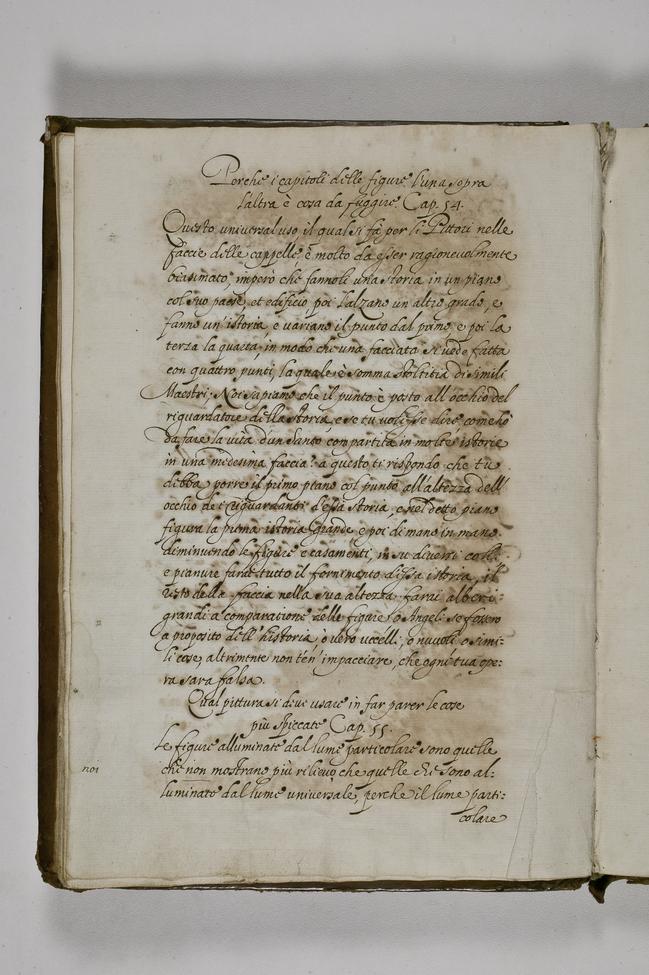 Perche i capitoli delle figure l'una sopra
l'altra è cosa da fuggire. Cap. 54.
Questo universal uso il qual si fà per li Pittori nelle
faccie delle cappelle, è molto da esser ragionevolmente
biasimato, imperò che fannoli una storia in un piano
col suo paese, et edificio poi s'alzano un altro grado, e
fanno un'istoria, e variano il punto dal primo, e poi la
terza la quarta, in modo che una facciata si vede fatta
con quattro punti, la quale è somma stoltitia di simili
Maestri; Noi sapiamo che il punto è posto all'occhio del
riguardatore della storia, e se tu volesse dire, come hò
da fare la vita d'un Santo compartita in molte istorie
in una medesima faccia? à questo ti rispondo che tu
debba porre il primo piano col punto all'altezza dell'
occhio de i riguardanti d'essa storia, e nel detto piano
figura la prima istoria grande, e poi di mano in mano
diminuendo le figure e casamenti, in su diversi colli,
e pianure farai tutto il fornimento d'essa istoria, il
resto della faccia nella sua altezza farai alberi
grandi a comparatione delle figure, o Angeli se fossero
a proposito dell'historia, ò vero uccelli, ò nuvoli o simi:
li cose, altrimente non te n'impacciare, che ogni tua ope:
ra sara falsa.
Qual pittura si deve usare in far parer le cose
più spiccate Cap. 55.
Le figure alluminate dal lume particolare sono quelle
che non mostrano più rilievo che quelle che sono al:
noi
luminate dal lume universale, perche il lume parti:
colare